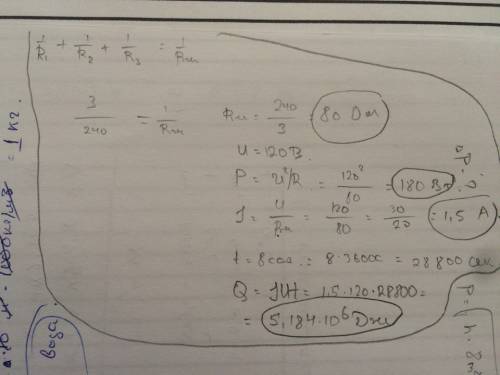 1/R₁ + 1/R₂ + 1/R₃ = 1/Rпм
3/240 = 1/Rпм
Rп = 240/3 = 80 Ом
U = 120 В.
P = U²/R = 120²/80 = 180 Вт
J = U/Rп = 120/80 = 30/20 = 1,5 А
t = 8 час = 8·3600с = 28800 сек
Q = JUt = 1.5·120·28800 =
= 5,184·10⁶ Дж
= 1 кг.
вода